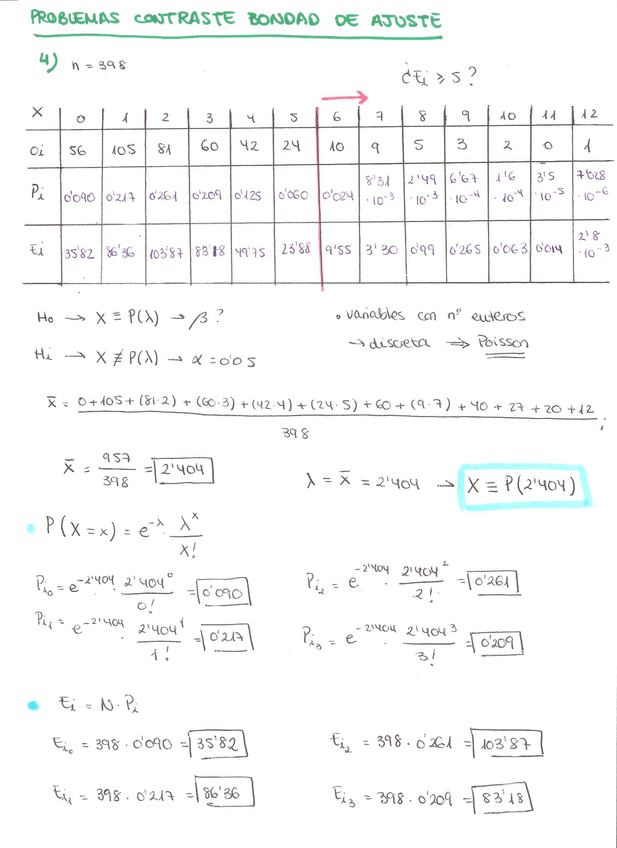 PROBLEMAS CONTRASTE BONDAD DE AJUSTE
4) n = 398
¿Ei ≥ 5?
X 0 1 2 3 4 5 6 7 8 9 10 11 12
Oi 56 105 81 60 42 24 10 9 5 3 2 0 1
Pi 0'090 0'217 0'261 0'209 0'125 0'060 0'024 8'31·10⁻³ 2'49·10⁻³ 6'67·10⁻⁴ 1'6·10⁻⁴ 3'5·10⁻⁵ 7'028·10⁻⁶
Ei 35'82 86'36 103'87 83'18 49'75 23'88 9'55 3'30 0'99 0'265 0'063 0'014 2'8·10⁻³
Ho → X ≡ P(λ) → β?
• variables con nº enteros
Hi → X ≢ P(λ) → α = 0'05
→ discreta ⇒ Poisson
x̄ = 0 + 105 + (81·2) + (60·3) + (42·4) + (24·5) + 60 + (9·7) + 40 + 27 + 20 + 12 / 398 ;
x̄ = 957 / 398 = 2'404
λ = x̄ = 2'404 → X ≡ P(2'404)
• P(X = x) = e^-λ · λ^x / x!
Pi₀ = e^-2'404 · 2'404⁰ / 0! = 0'090
Pi₂ = e^-2'404 · 2'404² / 2! = 0'261
Pi₁ = e^-2'404 · 2'404¹ / 1! = 0'217
Pi₃ = e^-2'404 · 2'404³ / 3! = 0'209
• Ei = N · Pi
Ei₀ = 398 · 0'090 = 35'82
Ei₂ = 398 · 0'261 = 103'87
Ei₁ = 398 · 0'217 = 86'36
Ei₃ = 398 · 0'209 = 83'18